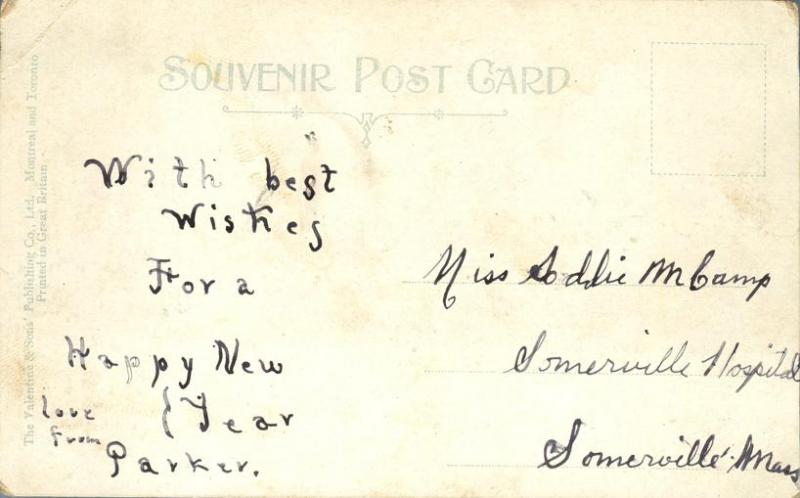 SOUVENIR POST CARD
The Valentine & Sons' Publishing Co., Ltd. Montreal and Toronto
Printed in Great Britain
With best
Wishes
For a
Happy New
Year
Love
From
Parker.
Miss Addie M Camp
Somerville Hospital
Somerville Mass